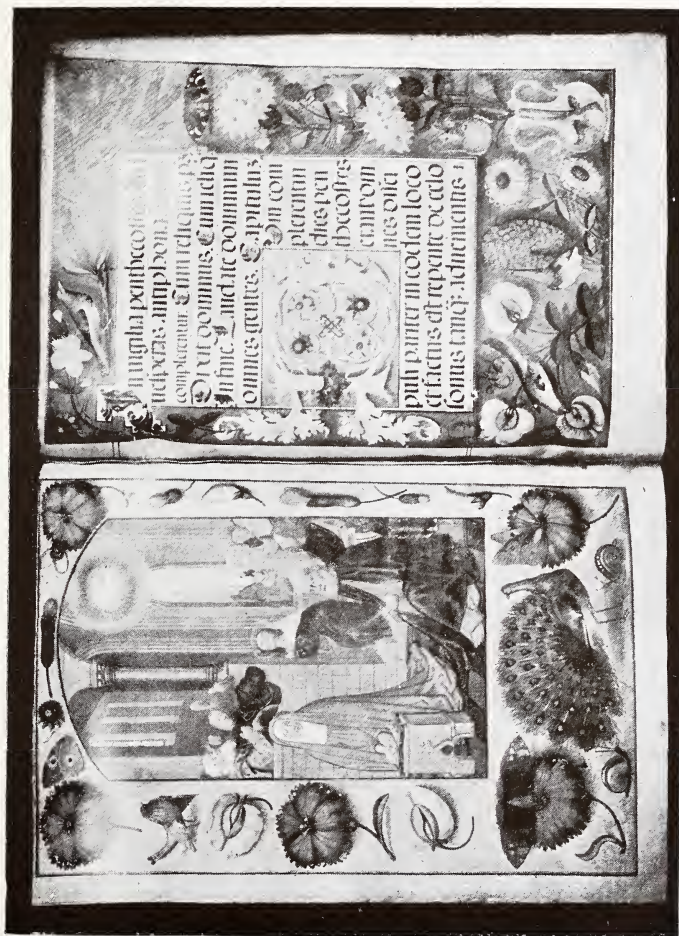 In vigilia penthecostes
vesperas antiphona
complerentur. Cum reliquis ps
Dixit dominus. Cum reliq
In fine. Laudate dominum
omnes gentes. Capitulum.
um com
plerentur
dies pen
thecostes
erant om
nes disci
puli pariter in eodem loco
et factus est repente de celo
sonus tanqꝫ advenientis